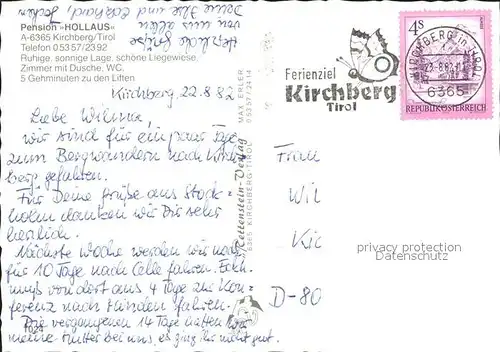 Pension "HOLLAUS"
A-6365 Kirchberg/Tirol
Telefon 05357/2392
Ruhige, sonnige Lage, schöne Liegewiese,
Zimmer mit Dusche, WC,
5 Gehminuten zu den Liften
Kirchberg, 22.8.82
Liebe Wilma,
wir sind für ein paar Tage
zum Bergwandern nach Kirch=
berg gefahren.
Für Deine Grüße aus Stock=
holm danken wir Dir sehr
herzlich.
Nächste Woche werden wir noch
für 10 Tage nach Celle fahren. Eckh.
muß von dort aus 4 Tage zur Kon=
ferenz nach Münden fahren.
Die vergangenen 14 Tage hatten wir
meine Mutter bei uns, es ging ihr nicht gut.
Herzliche Grüße
von uns allen
Deine Ilse und Eckhard,
Rettenstein-Verlag
6365 KIRCHBERG-TIROL
MAX ERLER
05357/2414
Ferienziel
Kirchberg
Tirol
4S
REPUBLIK ÖSTERREICH
KIRCHBERG in TIROL
23.-8.82
6365
Frau
Wil
Kic
D-80
privacy protection
Datenschutz